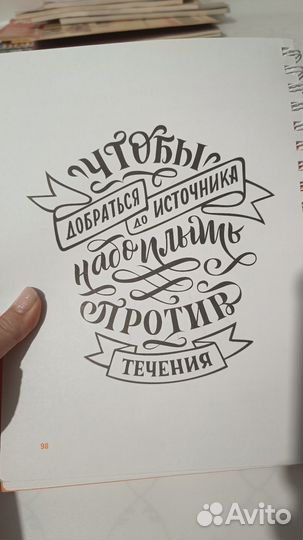 ЧТОБЫ
ДОБРАТЬСЯ ДО ИСТОЧНИКА
надо плыть
ПРОТИВ
ТЕЧЕНИЯ
98
Avito